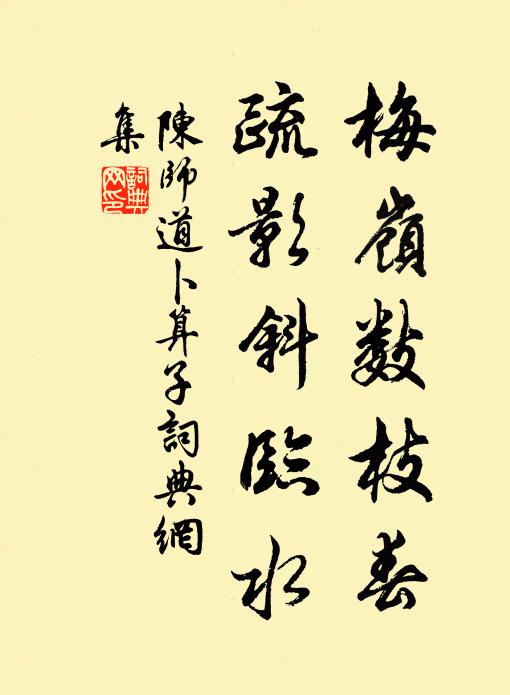 梅嶺數枝春
疏影斜臨水
陳師道卜算子詞典網
集
詞典網印